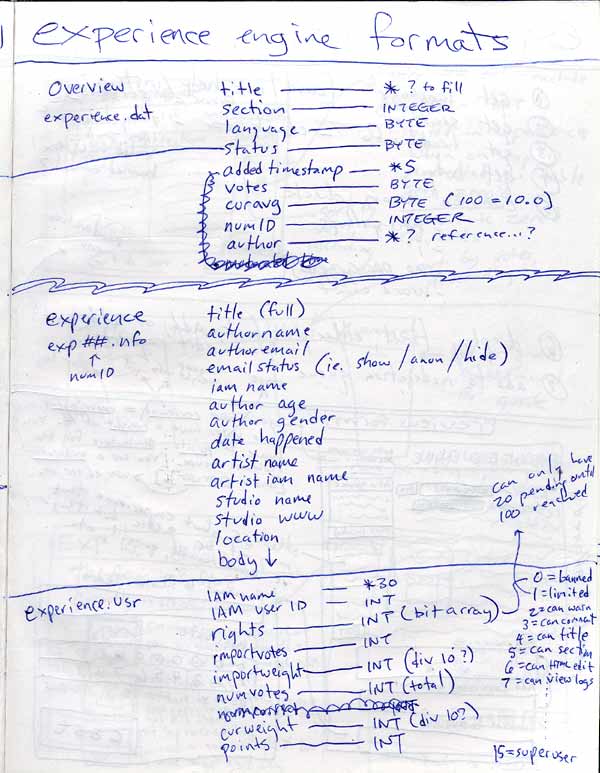 experience engine formats
Overview
experience.dat
title — * ? to fill
section — INTEGER
language — BYTE
status — BYTE
added timestamp — *5
votes — BYTE
curavg — BYTE (100 = 10.0)
numID — INTEGER
author — * ? reference...?
experience
exp ##.nfo
↑
numID
title (full)
author name
author email
email status (ie. show / anon / hide)
iam name
author age
author gender
date happened
artist name
artist iam name
studio name
studio www
location
body ↓
can only have
20 pending until
100 reached
experience.usr
IAM name — *30
IAM user ID — INT
rights — INT (bit array)
importvotes — INT
importweight — INT (div 10?)
numvotes — INT (total)
curweight — INT (div 10?)
points — INT
0 = banned
1 = limited
2 = can warn
3 = can correct
4 = can title
5 = can section
6 = can HTML edit
7 = can view logs
15 = superuser